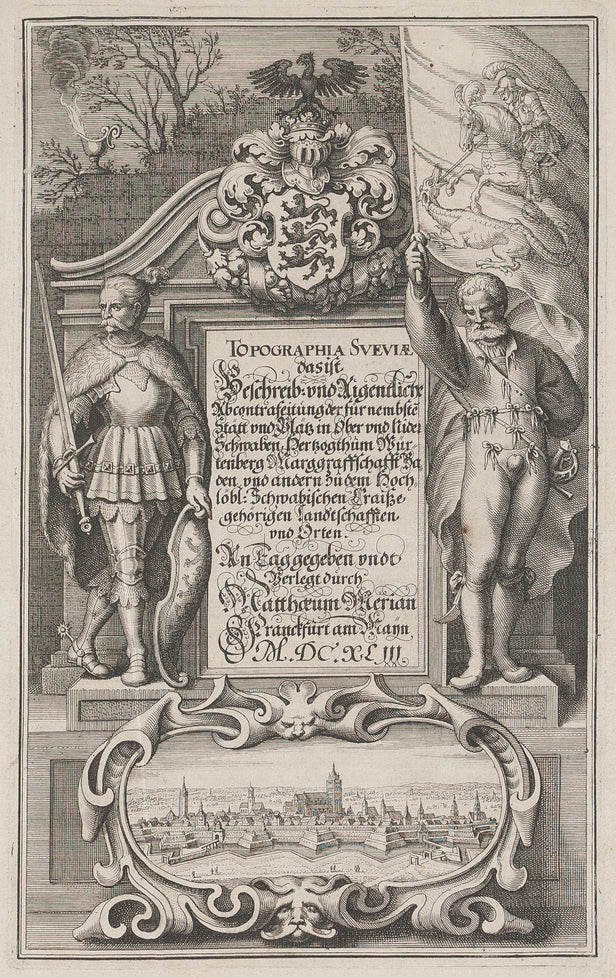 TOPOGRAPHIA SUEVIÆ
das ist
Beschreib: vnd Aigentliche
Abcontrafeitung der fürnembste
Stätt vnd Plätz in Ober vnd Nider
Schwaben, Hertzogthum Wür-
tenberg Marggraffschafft Ba
den, vnd andern zu dem Hoch
löbl: Schwabischen Craiße
gehörigen Landtschafften
vnd Orten.
An Tag gegeben vndt
Verlegt durch
Matthæum Merian
Franckfurt am Mayn
M.DC.XLIII